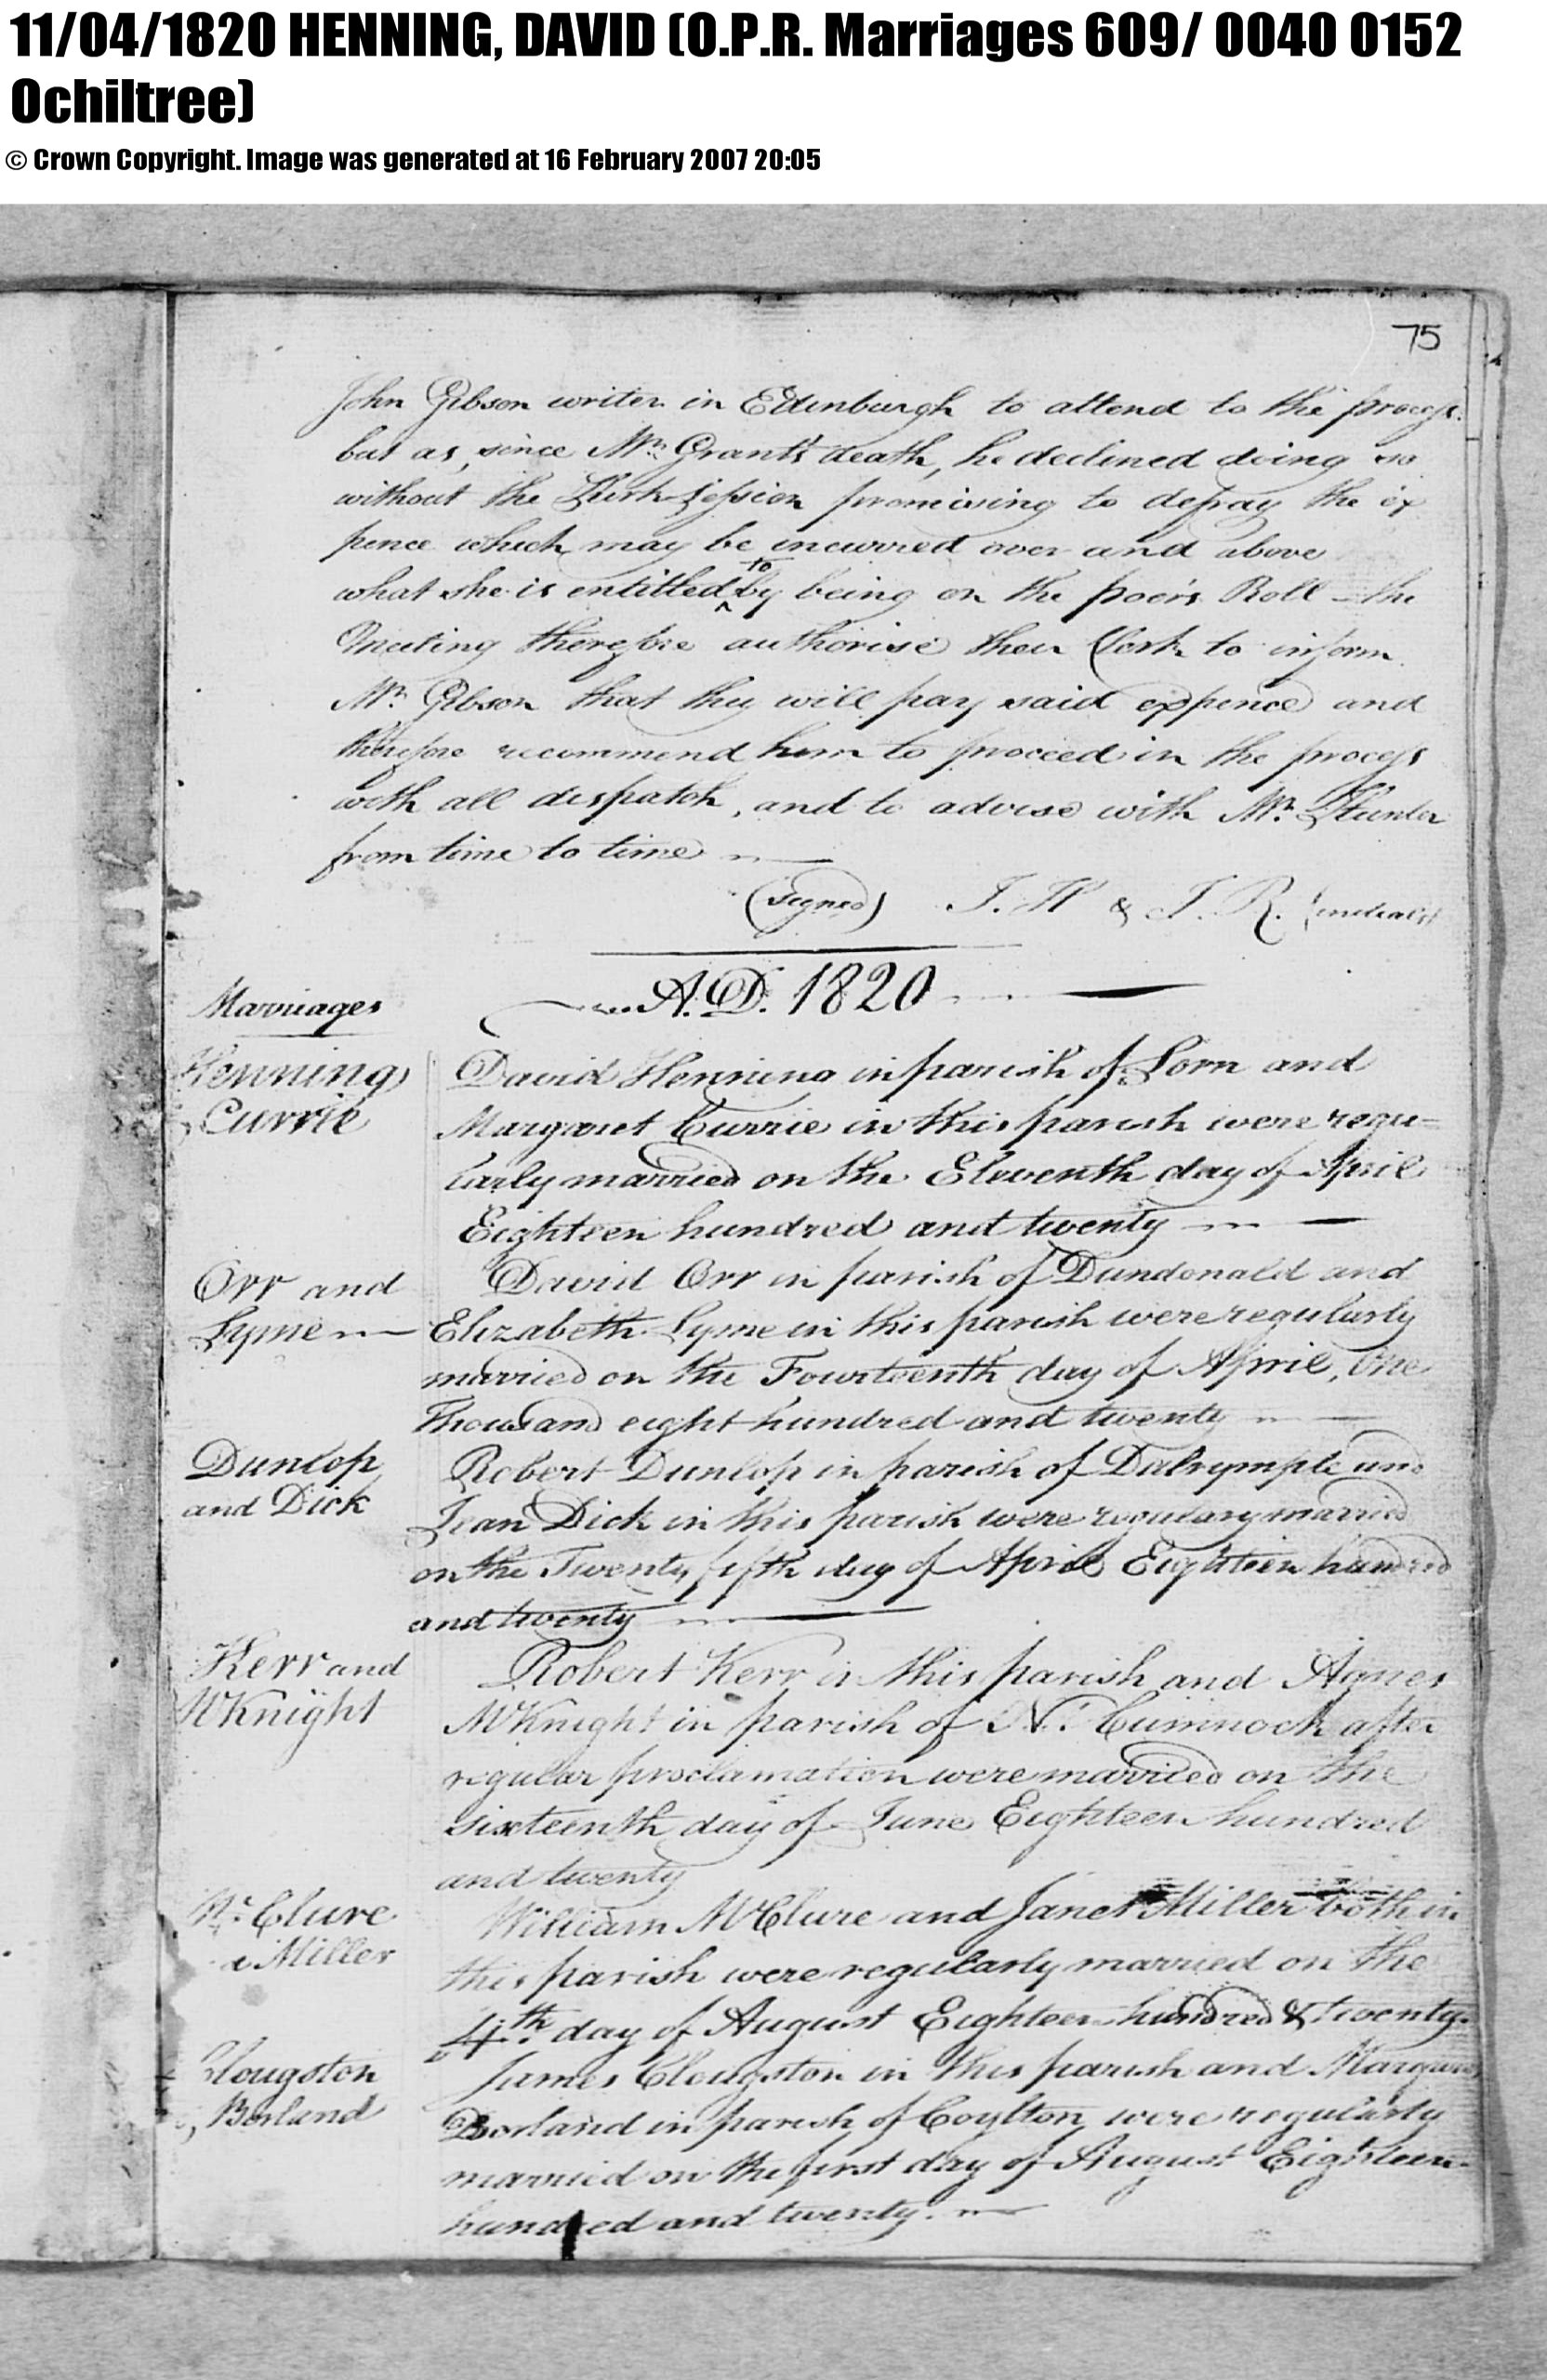 11/04/1820 HENNING, DAVID (O.P.R. Marriages 609/ 0040 0152
Ochiltree)
© Crown Copyright. Image was generated at 16 February 2007 20:05
75
John Gibson writer in Edinburgh to attend to the process
but as, since Mr. Grant's death, he declined doing so
without the Kirk-Session promising to defray the ex
pence which may be incurred over and above
to
what she is entitled ^ by being on the poor's Roll - the
Meeting therefore authorise their Clerk to inform
Mr. Gibson that they will pay said expence and
therefore recommend him to proceed in the process
with all dispatch, and to advise with Mr. Hunter
from time to time
(signed) J. H & J. R. (initials)
A.D. 1820
Marriages
Henning
& Currie
David Henning in parish of Sorn and
Margaret Currie in this parish were regu=
larly married on the Eleventh day of April
Eighteen hundred and twenty
Orr and
Syme
David Orr in parish of Dundonald and
Elizabeth Syme in this parish were regularly
married on the Fourteenth day of April, One
Thousand eight hundred and twenty
Dunlop
and Dick
Robert Dunlop in parish of Dalrymple and
Jean Dick in this parish were regulary married
on the Twenty fifth day of April Eighteen hundred
and twenty
Kerr and
McKnight
Robert Kerr in this parish and Agnes
McKnight in parish of N. Cumnock after
regular proclamation were married on the
sixteenth day of June Eighteen hundred
and twenty
Mc Clure
& Miller
William McClure and Janet Miller both in
this parish were regularly married on the
4th day of August Eighteen hundred & twenty.
Clougston
& Borland
James Clougston in this parish and Margaret
Borland in parish of Coylton were regularly
married on the first day of August Eighteen
hundred and twenty.